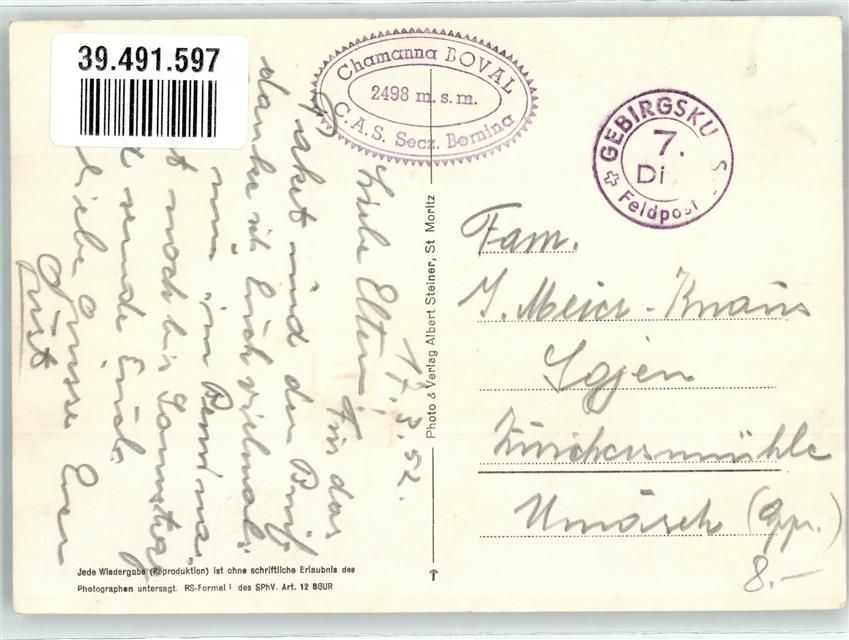 39.491.597
Chamanna BOVAL
2498 m. s. m.
C. A. S. Secz. Bernina
GEBIRGSKU
7.
Di
Feldpost
17. 3. 52.
Liebe Eltern! Für das
Paket und den Brief
danke ich Euch vielmals
nun im Bernina.
noch bis Samstag
sende Euch
liebe Grüsse Euer
Kurt
Photo & Verlag Albert Steiner, St Moritz
Fam.
J. Meier-Knaus
Sojen
Zürchersmühle
Urnäsch (App.)
8.-
Jede Wiedergabe (Reproduktion) ist ohne schriftliche Erlaubnis des
Photographen untersagt. RS-Formel I des SPhV. Art. 12 BGUR